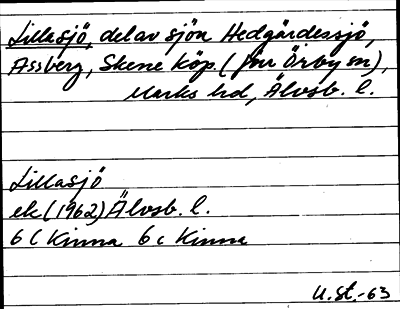 Lillasjö, del av sjön Hedgärdessjö,
Assberg, Skene köp. (förr Örby sn),
Marks hd, Älvsb. l.
Lillasjö
ek (1962) Älvsb. l.
6 C Kinna 6 c Kinna
U.St.-63